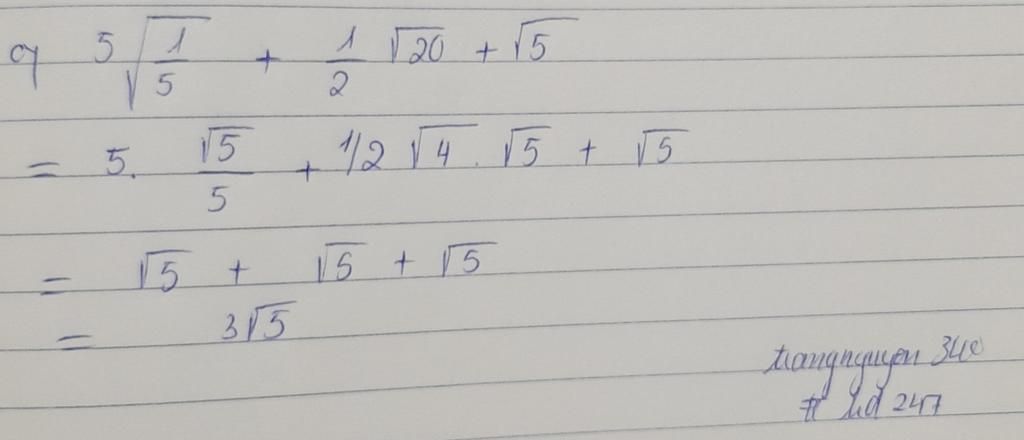 a) 5√(1/5) + 1/2 √20 + √5
= 5. √5/5 + 1/2 √4 . √5 + √5
= √5 + √5 + √5
= 3√5
trangnguyen
# hd 247